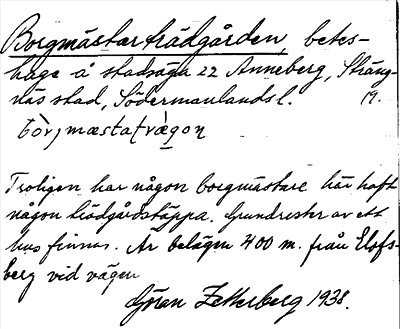 Borgmästarträdgården, betes-
hage å stadsäga 22 Anneberg, Sträng-
näs stad, Södermanlands l. 19.
Troligen har någon borgmästare här haft
någon trädgårdstäppa. Grundrester av ett
hus finnas. Är belägen 400 m. från Elofs-
berg vid vägen
Göran Zetterberg 1938.